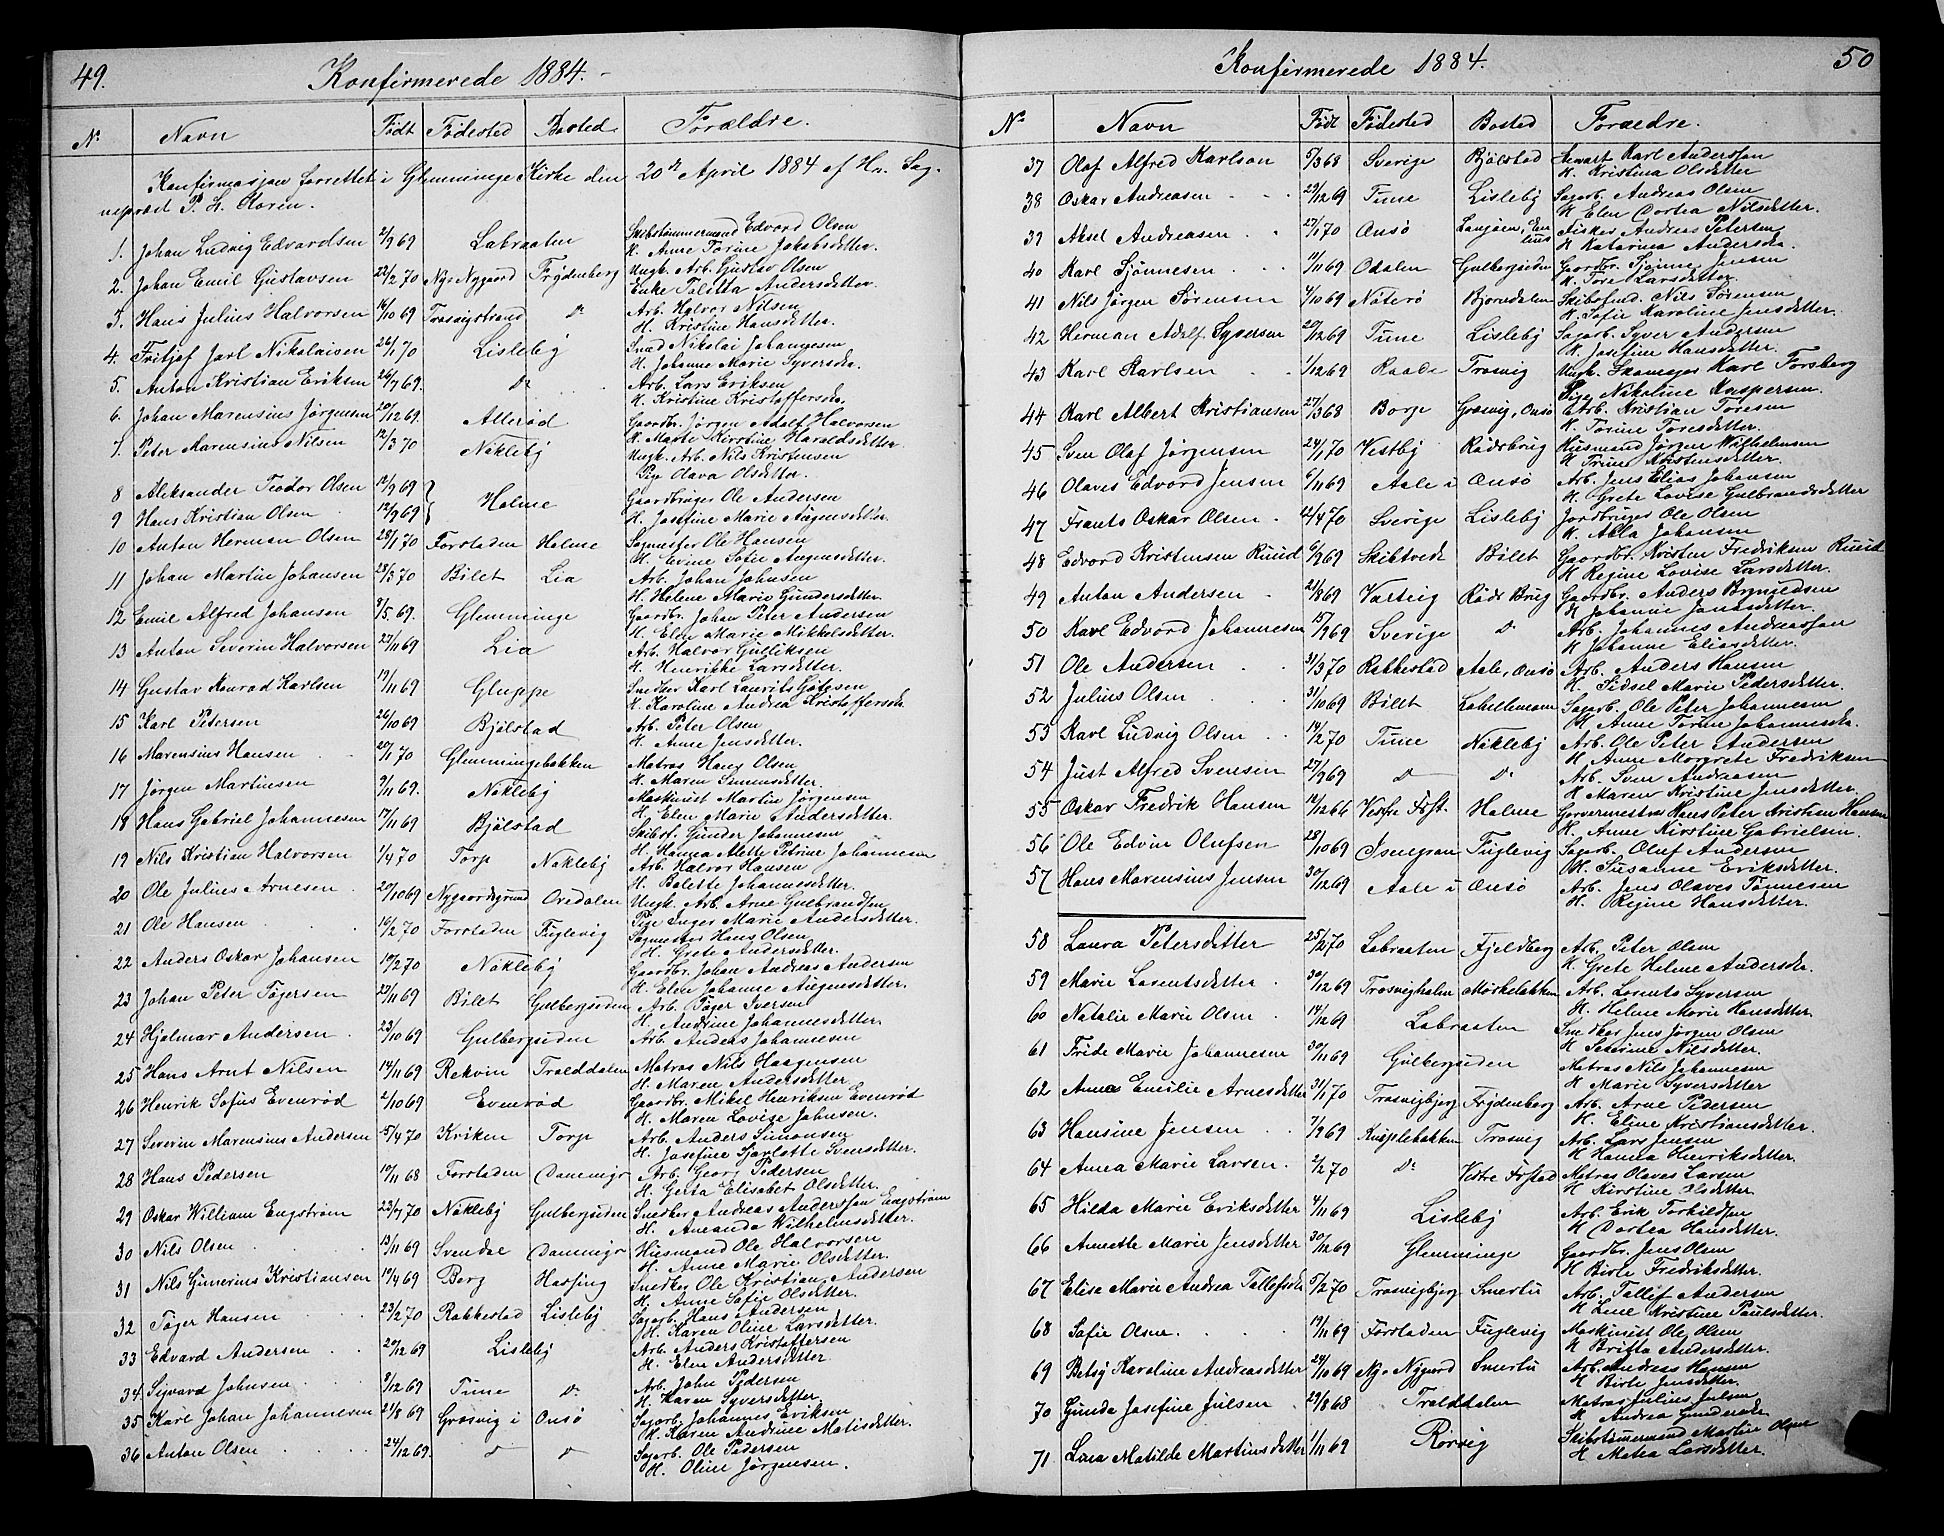 49.
Konfirmerede 1884.
No Navn Født Fødested Bosted Forældre.
Konfirmasjon forrettet i Glemminge Kirke den 20de April 1884 af Hr. Sog-
neprest P. L.
1. Johan Ludvig Edvardsen 2/9 69 Labraaten Skibstømmermand Edvard Olsen
K. Anne Torine Jakobsdetter.
2. Johan Emil Gustavsen 22/2 70 Nye Nygaard Frydenberg Ungk. Arb. Gustav Olsen
Enke Taletta Andersdetter.
3. Hans Julius Halvorsen 16/10 69 Trosvigstrand do Arb. Halvor Nilsen
H. Kristine Hansdetter.
4. Fritjof Jarl Nikolaisen 26/1 70 Lisleby Smed Nikolai Johannesen
H. Johanne Marie Syversda.
5. Anton Kristian Eriksen 26/7 69. do Arb. Lars Eriksen
K. Kristine Kristoffersda.
6. Johan Marensius Jørgensen 20/12 69. Allerød Gaardbr. Jørgen Adolf Halvorsen
K. Marte Kirstine Haraldsdetter.
7. Peter Marensius Nilsen 12/3 70 Nøkleby Ungk. Arb. Nils Kristensen
Pige Olava Olsdetter.
8 Aleksander Teodor Olsen 12/9 69 Holme Gaardbruger Ole Andersen
9 Hans Kristian Olsen 12/9 69 H. Josefine Marie Augensdetter.
10 Anton Herman Olsen 28/1 70 Forstaden Holme Sagmester Ole Hansen
H. Evine Sofie Augensdetter.
11 Johan Martin Johansen 28/3 70 Bilet Lia Arb. Johan Johnsen
H. Helene Marie Gundersdetter.
12 Emil Alfred Johansen 8/5 69. Glemminge Gaardbr. Johan Peter Andersen
H. Elen Marie Mikkelsdetter.
13 Anton Severin Halvorsen 22/11 69 Lia Arb. Halvor Gulliksen
H. Henrikke Larsdetter.
14 Gustav Konrad Karlsen 19/11 69 Gluppe Snedker Karl Laurits Gøtesen
K. Karoline Andrea Kristoffersda
15 Karl Petersen 26/10 69 Bjølstad Arb. Peter Olsen
H. Anne Jensdetter.
16 Marensius Hansen 20/1 70 Glemmingebakken Matros Hans Olsen
K. Maren Simensdetter.
17 Jørgen Martinsen 9/11 69. Nøkleby Maskinist Martin Jørgensen
H. Elen Marie Andersdetter.
18 Hans Gabriel Johannesen 17/11 69 Bjølstad Skibst. Gunder Johannesen
H. Hanna Alette Petrine Johannesen
19 Nils Kristian Halvorsen 1/4 70 Torp Nøkleby Arb. Halvor Hansen
H. Bolette Johannesdetter.
20 Ole Julius Arnesen 20/10 69 Nygaardsgrund Oredalen Ungk. Arb. Arne Gulbrandsen
Pige Inger Marie Andersdetter.
21 Ole Hansen 16/2 70 Forstaden Fuglevig Sagmester Hans Olsen
H. Grete Andersdetter.
22 Anders Oskar Johansen 10/2 70 Nøkleby Gaardbr. Johan Andreas Andersen
H. Elen Johanne Augensdetter.
23 Johan Peter Tøgersen 23/11 69 Bilet Gulbergsiden Arb. Tøger Iversen
H. Andrine Johannesdetter.
24 Hjalmar Andersen 23/10 69 Gulbergsiden Arb. Anders Johannesen
25 Hans Arnt Nilsen 14/11 69 Rekvin Tralddalen Matros Nils Haagensen
H. Maren Andersdetter
26 Henrik Sofus Evenrød 2/10 69 Evenrød Gaardbr. Mikel Henriksen Evenrød
H. Maren Lovise Johnsen.
27 Severin Marensius Andersen 5/4 70 Kriken Torp Arb. Anders Simonsen
H. Josefine Sjarlotte Svensdetter.
28 Hans Pedersen 10/11 68 Forstaden Dammigr Arb. Georg Pedersen
H. Gerta Elisabet Olsdetter.
29 Oskar William Engstrøm 22/7 70 Nøkleby Gulbergsiden Snedker Andreas Anderssen Engstrøm
H. Amanda Wilhelmsdetter.
30 Nils Olsen 13/11 69 Svendal Dammigr Husmand Ole Halvorsen
H. Anne Marie Olsdetter.
31 Nils Gunerius Kristiansen 19/4 69 Berg Hassing Snedker Ole Kristian Andersen
H. Anne Sofie Olsdetter.
32 Tøger Hansen 23/2 70 Rakkestad Lisleby Sagarb. Hans Andersen
H. Karen Oline Larsdetter.
33 Edvard Andersen 20/12 69 Lisleby Arb. Anders Kristoffersen
H. Elen Andersdetter
34 Sigvard Johnsen 8/12 69 Tune do Arb. John Pedersen
H. Karen Syversdetter
35 Karl Johan Johannesen 21/8 69 Grosvig i Onsø Sagarb. Johannes Eriksen
K. Karen Andrine Matisdetter.
36 Anton Olsen 24/12 69. do do Sagarb. Ole Pedersen
H. Oline Jørgensen.
50
Konfirmerede 1884.
No Navn Født Fødested Bosted Forældre.
37 Olaf Alfred Karlson 5/3 68 Sverige Bjølstad Karl Anderssen
K. Kristina Olsdetter
38 Oskar Andreasen 29/12 69 Tune Lisleby Sagarb. Andreas Olsen
H. Elen Dortea Nilsdetter.
39 Aksel Andreasen 27/1 70 Onsø Fisker Andreas Petersen
H Katarina Andersda.
40 Karl Sjønnesen 11/11 69 Odalen Gulbergsiden Gaardbr. Sjønne Jensen
K. Tore Larsdetter.
41 Nils Jørgen Sørensen 4/10 69 Nøterø Bjorndalen Skibsfmd. Nils Sørensen
K. Sofie Karoline Jensdetter.
42 Herman Adolf Syversen 20/12 69 Tune Lisleby Sagarb. Syver Andersen
K. Josefine Hansdetter.
43 Karl Karlsen 1/12 69 Raade Trosvig Ungk. Skomager Karl Forsberg
Pige Nikoline Kaspersen.
44 Karl Albert Kristiansen 27/3 68 Borge Grosvig, Onsø Arb. Kristian Toresen
K. Torine Toresdetter.
45 Sven Olaf Jørgensen 24/1 70 Vestby Rødsbrug Husmand Jørgen Wilhelmsen
H Trine Kristensdetter.
46 Olaves Edvard Jensen 6/11 69 Aale i Onsø Arb. Jens Elias Johansen
H. Grete Lovise Gulbrandsdetter
47 Frants Oskar Olsen 12/4 70 Sverige Lisleby Jordbruger Ole Olsen
K. Abla Johansen
48 Edvard Kristensen Ruud 6/9 69 Skibtvedt Bilet Gaardbr. Kristen Fredriksen Ruud
K Regine Lovise Larsdetter.
49 Anton Andersen 21/8 69 Varteig Røds Brug Gaardbr. Anders Brynildsen
H Johanne Jonasdetter.
50 Karl Edvard Johannesen 15/9 69 Sverige do Arb. Johannes Andreassen
K Johanne Eliasdetter.
51 Ole Andersen 31/3 70 Rakkestad Aale, Onsø Arb. Anders Hansen
H. Sidsel Marie Pedersdetter.
52 Julius Olsen 31/10 69 Bilet Lahellemoen Sagarb. Ole Peter Johannesen
H Anne Torine Johannesda.
53 Karl Ludvig Olsen 14/2 70 Tune Nøkleby Arb. Ole Peter Andersen
H Anne Margrete Fredriksen
54 Just Alfred Svensen 27/9 69 do do Arb. Sven Andreasen
K Maren Kristine Jensdetter.
55 Oskar Fredrik Hansen 12/12 66 Vestre Forst. Holme Garvermester Hans Peter Kristian Hansen
H. Anne Kirstine Gabrielsen.
56 Ole Edvin Olufsen 28/10 69 Isengran Fuglevig Sagarb. Oluf Andersen
H. Susanne Eriksdetter.
57 Hans Marensius Jensen 30/12 69 Aale i Onsø Arb. Jens Olaves Tønnesen
H. Regine Hansdetter.
58 Laura Petersdetter 25/1 70 Labraaten Fjeldberg Arb. Peter Olsen
K. Grete Helene Andersda.
59 Marie Lorentsdetter 30/12 69 Trosvighalen Mørkebakken Arb. Lorents Syversen
H. Helene Marie Hansdetter.
60 Natalie Marie Olsen 14/12 69 Labraaten Snedker Jens Jørgen Olsen
H Severine Nilsdetter.
61 Fride Marie Johannesen 30/11 69 Gulbergsiden Matros Nils Johannesen
K Marie Syversdetter.
62 Anna Emilie Arnesdetter 31/1 70 Trosvigbjerg Frydenberg Arb. Arne Pedersen
H. Eline Kristiansdetter.
63 Hansine Jensen 7/9 69 Kniplebakken Trosvig Arb. Lars Jensen
K Hanna Henriksdetter.
64 Anna Marie Larsen 2/2 70 do Vestre Forstad Matros Olaves Larsen
H Kirstine Olsdetter
65 Hilda Marie Eriksdetter 4/11 69 Lisleby Arb. Erik Torkildsen
K Dortea Hansdetter.
66 Annette Marie Jensdetter 30/12 69 Glemminge Gaardbr. Jens Olsen
H Birte Fredriksdetter.
67 Elise Marie Andrea Tallefsda 5/2 70 Trosvigbjerg Smertu Arb. Tallef Andersen
K Line Kristine Paulsdetter.
68 Sofie Olsen. 19/11 69 Forstaden Fuglevig Maskinist Ole Olsen
K Britta Andersdetter.
69 Betsy Karoline Andreasdetter 24/10 69 Nye Nygaard Smertu Arb. Andreas Hansen
H Birte Jensdetter.
70 Gunda Josefine Julsen 29/8 68 Tralddalen Matros Julius Julsen
K Andrea Gundersda
71 Lina Matilde Martinsdetter 1/11 69 Rørvig Skibstømmermand Martin Olsen
H Matea Larsdetter.